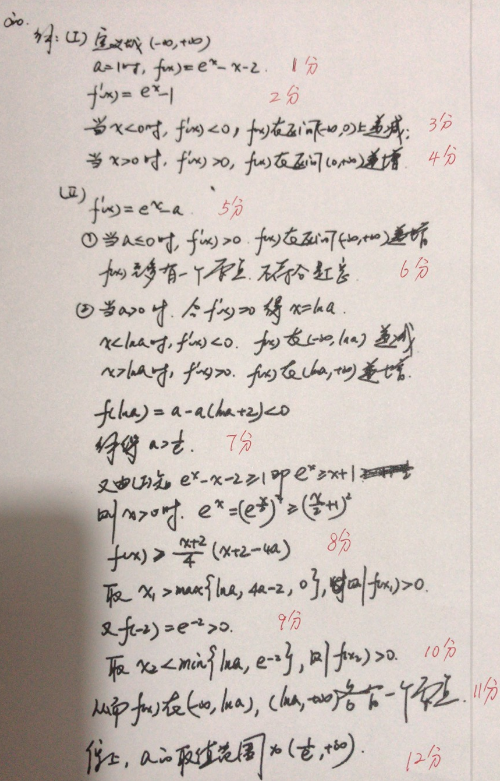 20.
解:(I) 定义域(-∞,+∞)
a=1时, f(x)=eˣ-x-2. 1分
f'(x)=eˣ-1 2分
当x<0时, f'(x)<0, f(x)在区间(-∞,0)上递减; 3分
当x>0时, f'(x)>0, f(x)在区间(0,+∞)递增. 4分
(II)
f'(x)=eˣ-a. 5分
①当a≤0时, f'(x)>0. f(x)在区间(-∞,+∞)递增
f(x)至多有一个零点. 不符合题意. 6分
②当a>0时. 令f'(x)=0 得 x=lna.
x<lna时, f'(x)<0. f(x)在(-∞,lna)递减
x>lna时, f'(x)>0. f(x)在(lna,+∞)递增.
f(lna)=a-a(lna+2)<0
解得 a>1/e. 7分
又由(I)知 eˣ-x-2≥1即eˣ≥x+1
则x>0时. eˣ=(e^(x/2))²≥(x/2+1)²
f(x)≥(x+2)/4(x+2-4a) 8分
取 x₁>max{lna, 4a-2, 0}, 则f(x₁)>0.
又f(-2)=e⁻²>0. 9分
取 x₂<min{lna, e-2}, 则f(x₂)>0. 10分
从而f(x)在(-∞,lna), (lna,+∞)各有一个零点. 11分
综上, a的取值范围为(1/e,+∞). 12分